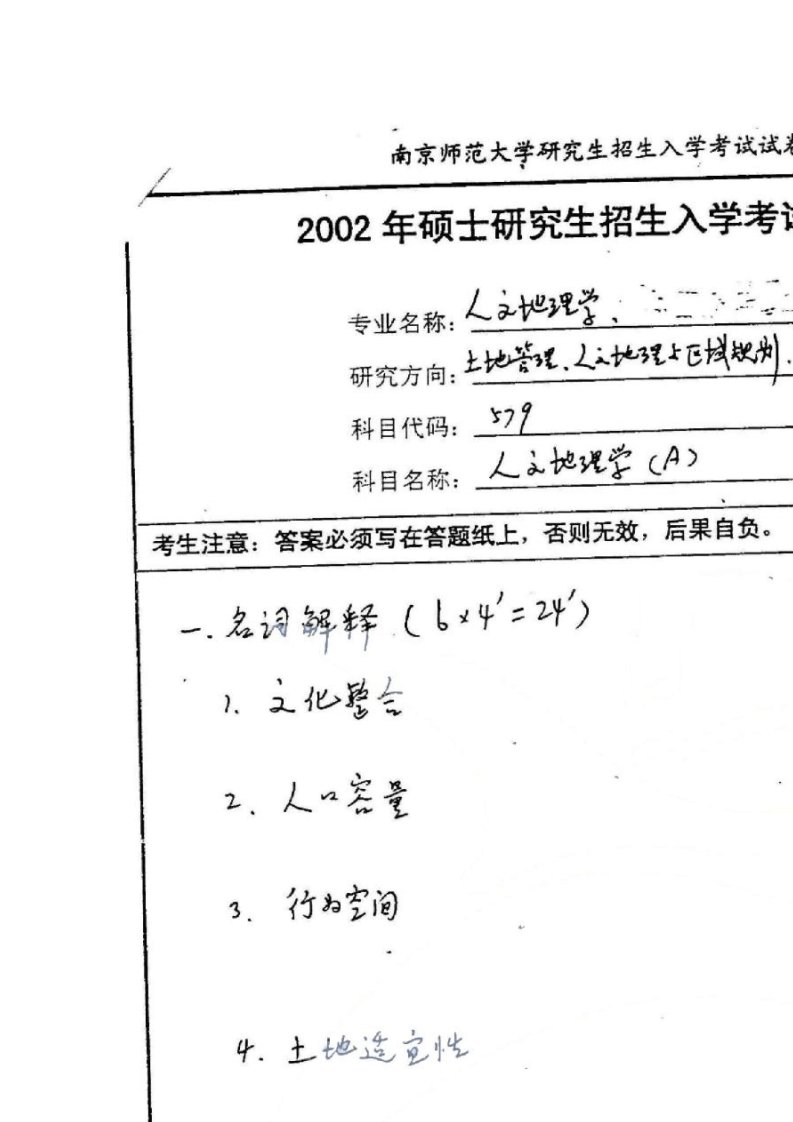 南京师范大学研究生招生入学考试试卷
2002 年硕士研究生招生入学考试
专业名称：人文地理学、
研究方向：土地管理、人文地理与区域规划、
科目代码：579
科目名称：人文地理学（A）
考生注意：答案必须写在答题纸上，否则无效，后果自负。
一.名词解释（6×4'=24'）
1. 文化整合
2. 人口容量
3. 行为空间
4. 土地适宜性